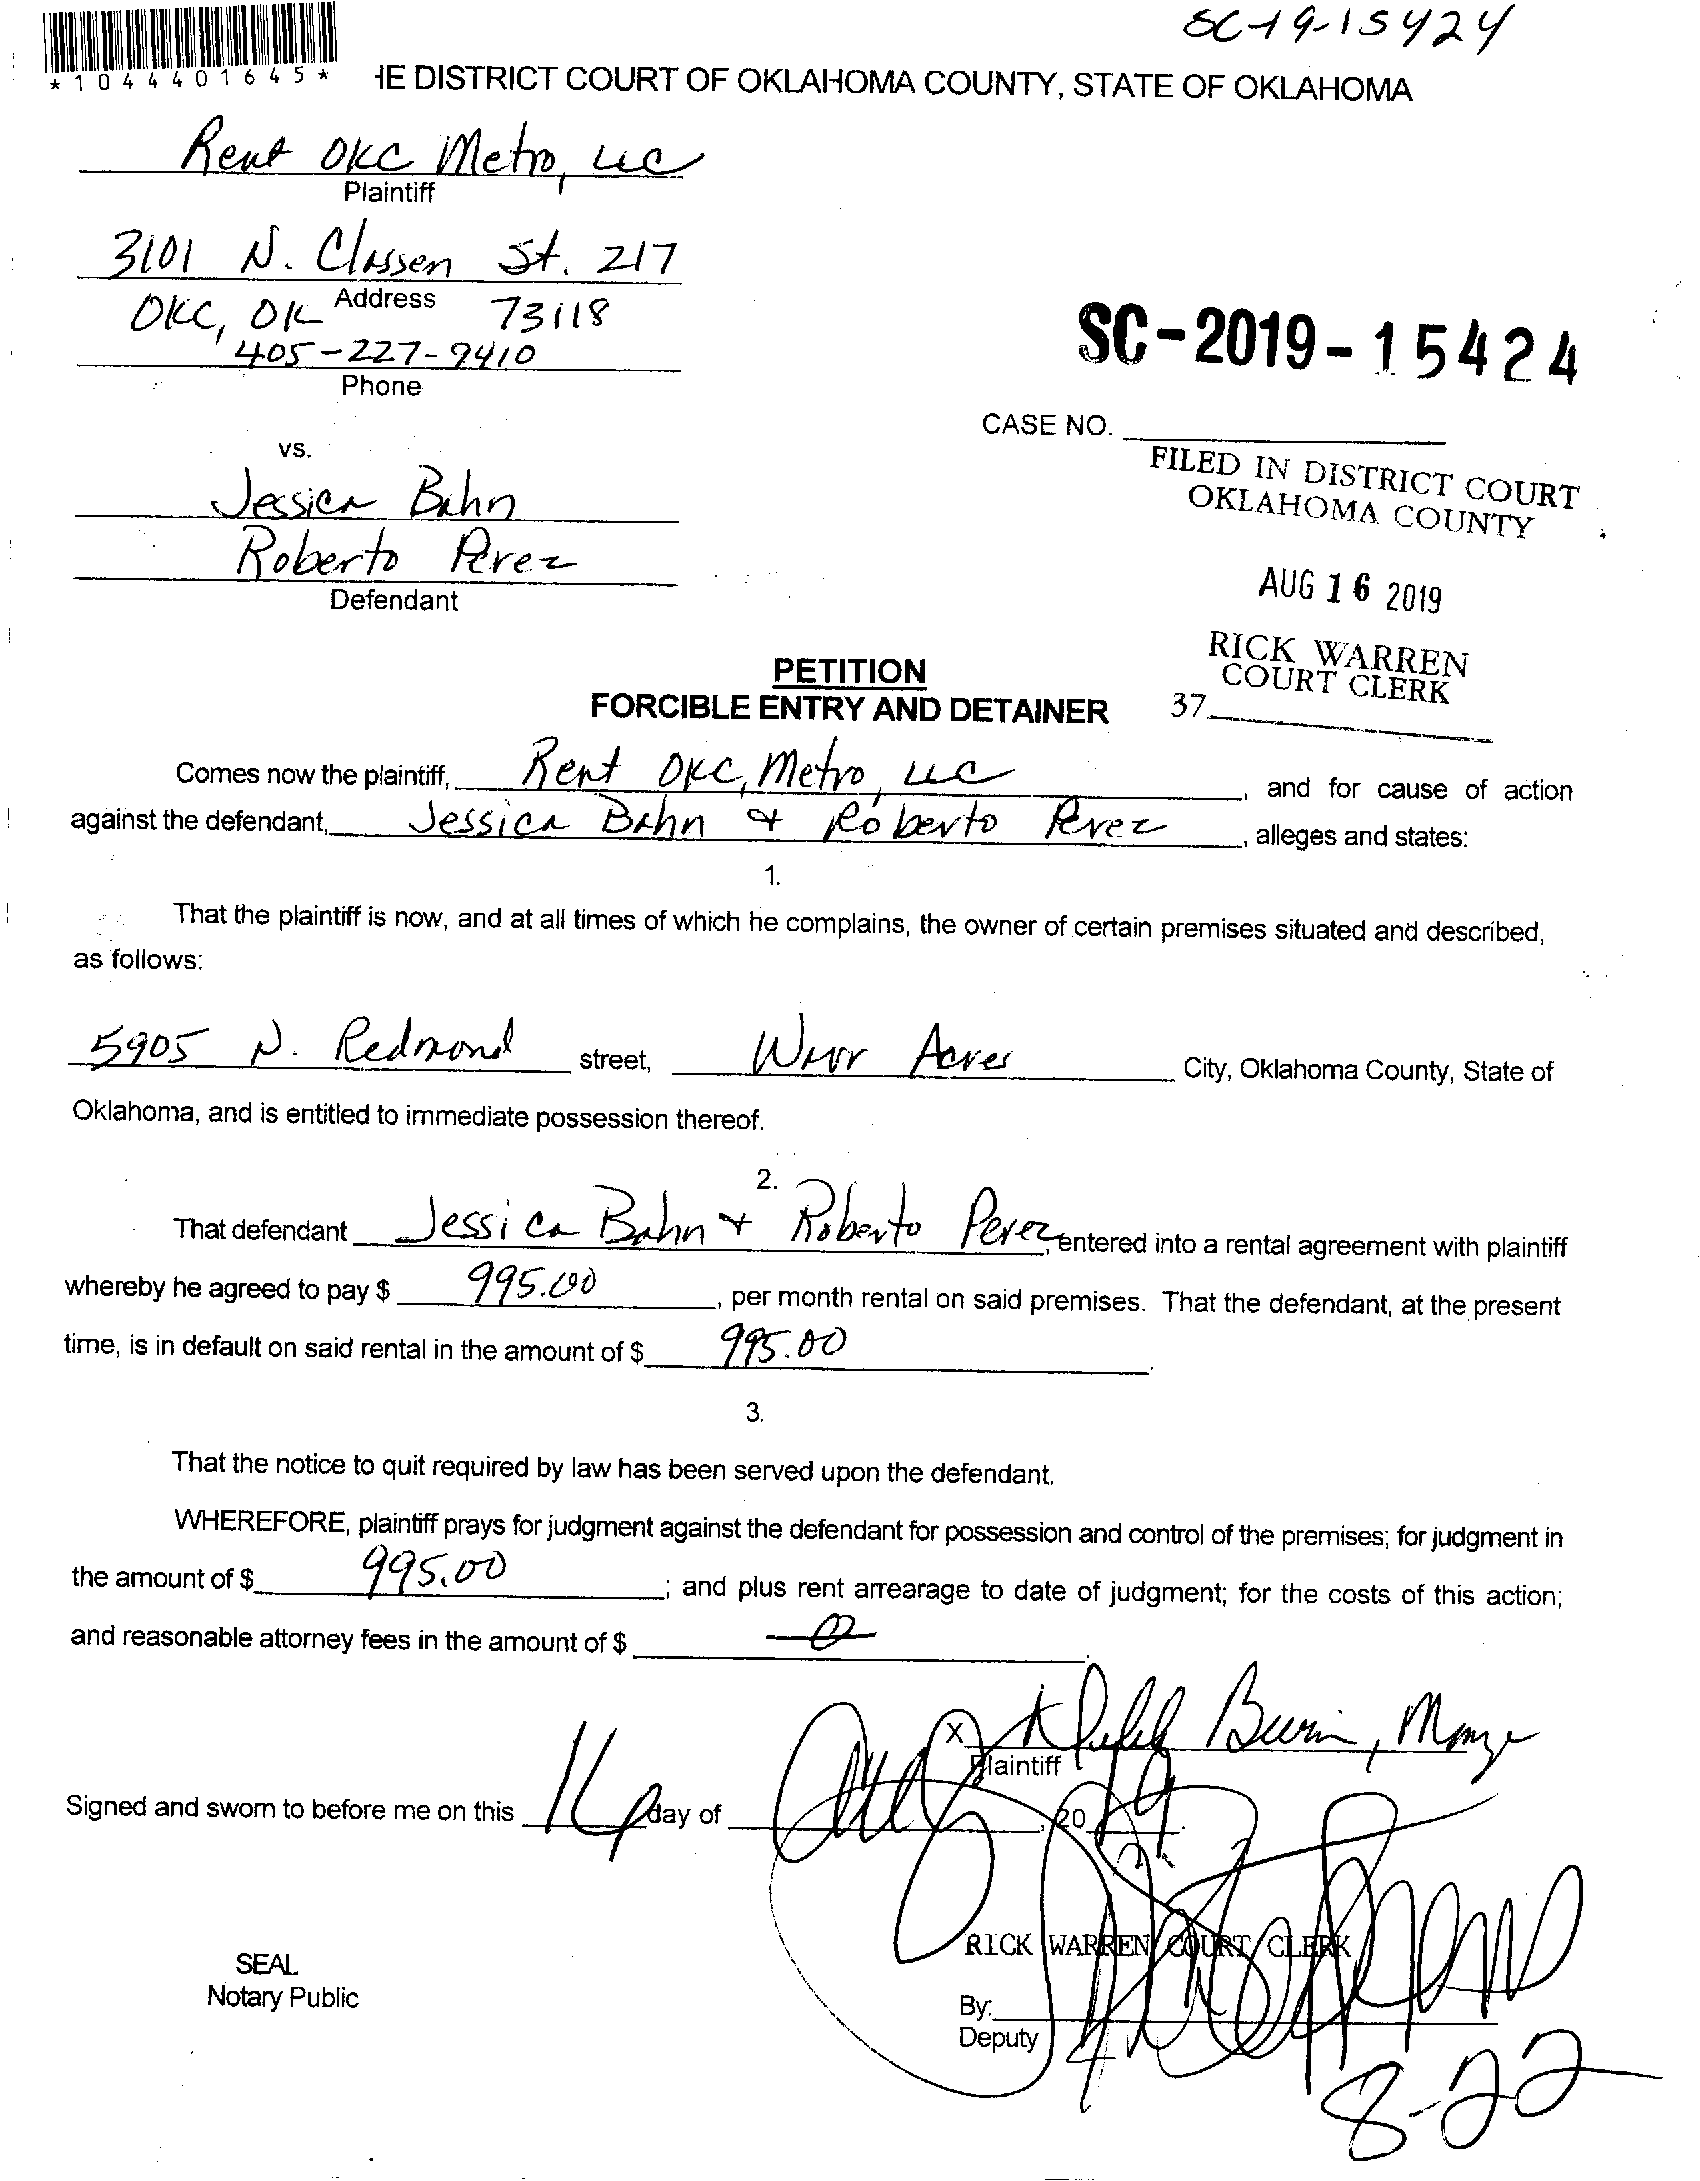 SC-19-15424
*1044401645*
HE DISTRICT COURT OF OKLAHOMA COUNTY, STATE OF OKLAHOMA
Rent OKC Metro, LLC
Plaintiff
3101 N. Classen St. 217
Address
OKC, OK 73118
405-227-9410
Phone
SC-2019-15424
CASE NO.
vs.
Jessica Bahn
Roberto Perez
Defendant
FILED IN DISTRICT COURT
OKLAHOMA COUNTY
AUG 16 2019
RICK WARREN
COURT CLERK
37
PETITION
FORCIBLE ENTRY AND DETAINER
Comes now the plaintiff, Rent OKC, Metro, LLC, and for cause of action
against the defendant, Jessica Bahn & Roberto Perez, alleges and states:
1.
That the plaintiff is now, and at all times of which he complains, the owner of certain premises situated and described,
as follows:
5905 N. Redmond street, Warr Acres City, Oklahoma County, State of
Oklahoma, and is entitled to immediate possession thereof.
2.
That defendant Jessica Bahn + Roberto Perez, entered into a rental agreement with plaintiff
whereby he agreed to pay $ 995.00, per month rental on said premises. That the defendant, at the present
time, is in default on said rental in the amount of $ 995.00.
3.
That the notice to quit required by law has been served upon the defendant.
WHEREFORE, plaintiff prays for judgment against the defendant for possession and control of the premises; for judgment in
the amount of $ 995.00; and plus rent arrearage to date of judgment; for the costs of this action;
and reasonable attorney fees in the amount of $ 0.
X
Plaintiff
Signed and sworn to before me on this 16 day of Aug, 2019.
RICK WARREN COURT CLERK
SEAL
Notary Public
By:
Deputy
8-22